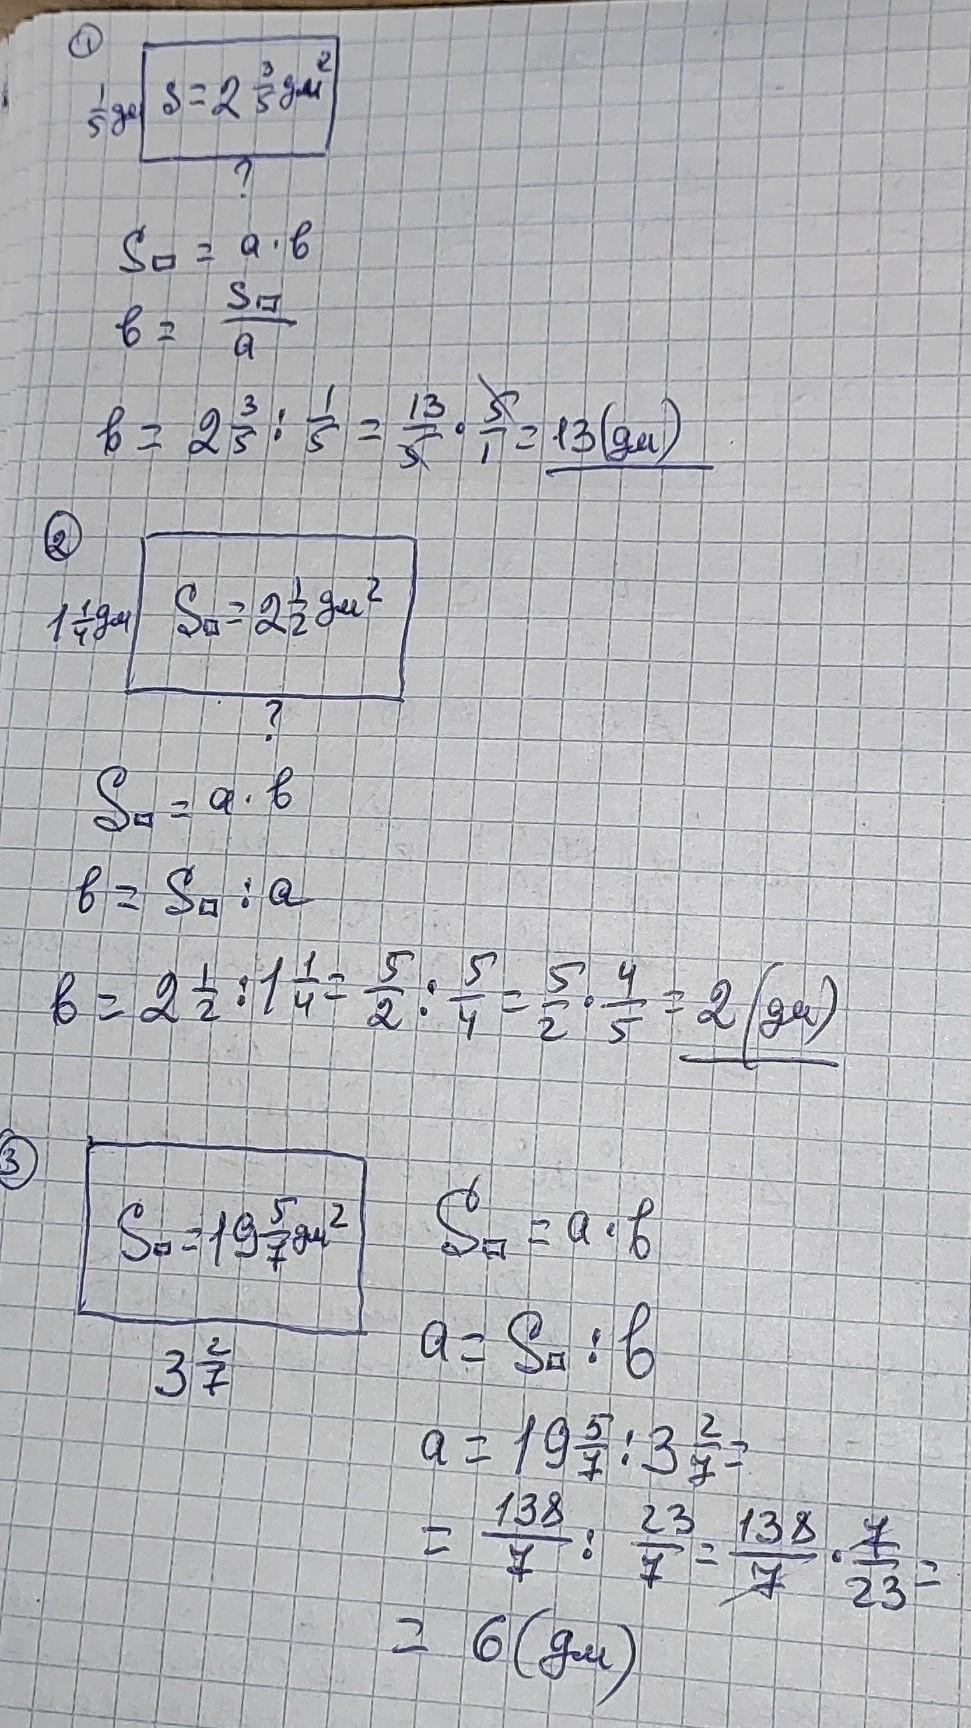 1
1/5 дм S = 2 3/5 дм²
?
S□ = a · b
b = S□/a
b = 2 3/5 : 1/5 = 13/5 · 5/1 = 13 (дм)
2
1 1/4 дм S□ = 2 1/2 дм²
?
S□ = a · b
b = S□ : a
b = 2 1/2 : 1 1/4 = 5/2 : 5/4 = 5/2 · 4/5 = 2 (дм)
3
S□ = 19 5/7 дм²
3 2/7
S□ = a · b
a = S□ : b
a = 19 5/7 : 3 2/7 =
= 138/7 : 23/7 = 138/7 · 7/23 =
= 6 (дм)